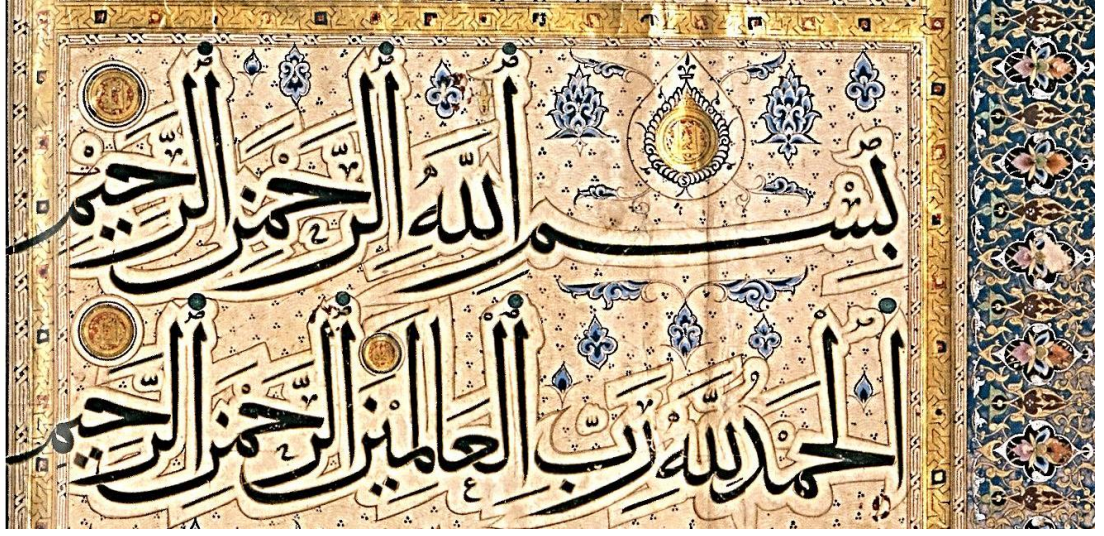 بِسْمِ اللَّهِ الرَّحْمٰنِ الرَّحِيمِ
الْحَمْدُ لِلَّهِ رَبِّ الْعَالَمِينَ الرَّحْمٰنِ الرَّحِيمِ